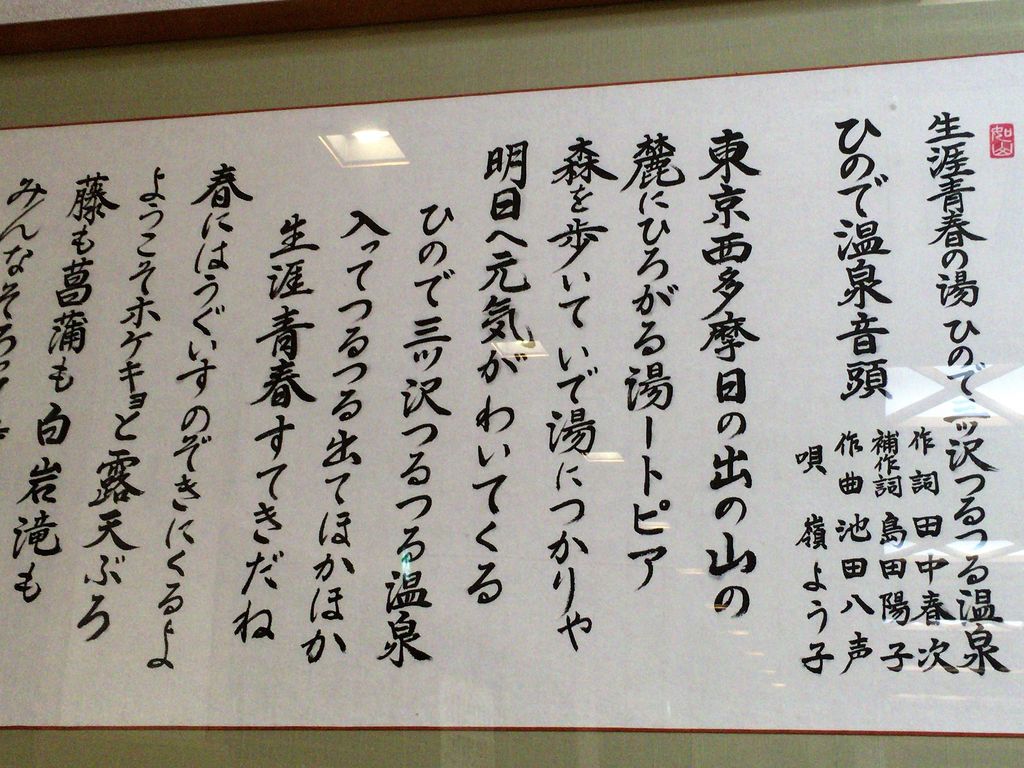 生涯青春の湯 ひので三ッ沢つるつる温泉
ひので温泉音頭
作詞 田中春次
補作詞 島田陽子
作曲 池田八声
唄 嶺よう子
東京西多摩日の出の山の
麓にひろがる湯ートピア
森を歩いていで湯につかりゃ
明日へ元気がわいてくる
ひので三ッ沢つるつる温泉
入ってつるつる出てほかほか
生涯青春すてきだね
春にはうぐいすのぞきにくるよ
ようこそホケキョと露天ぶろ
藤も菖蒲も白岩滝も
みんなそろって